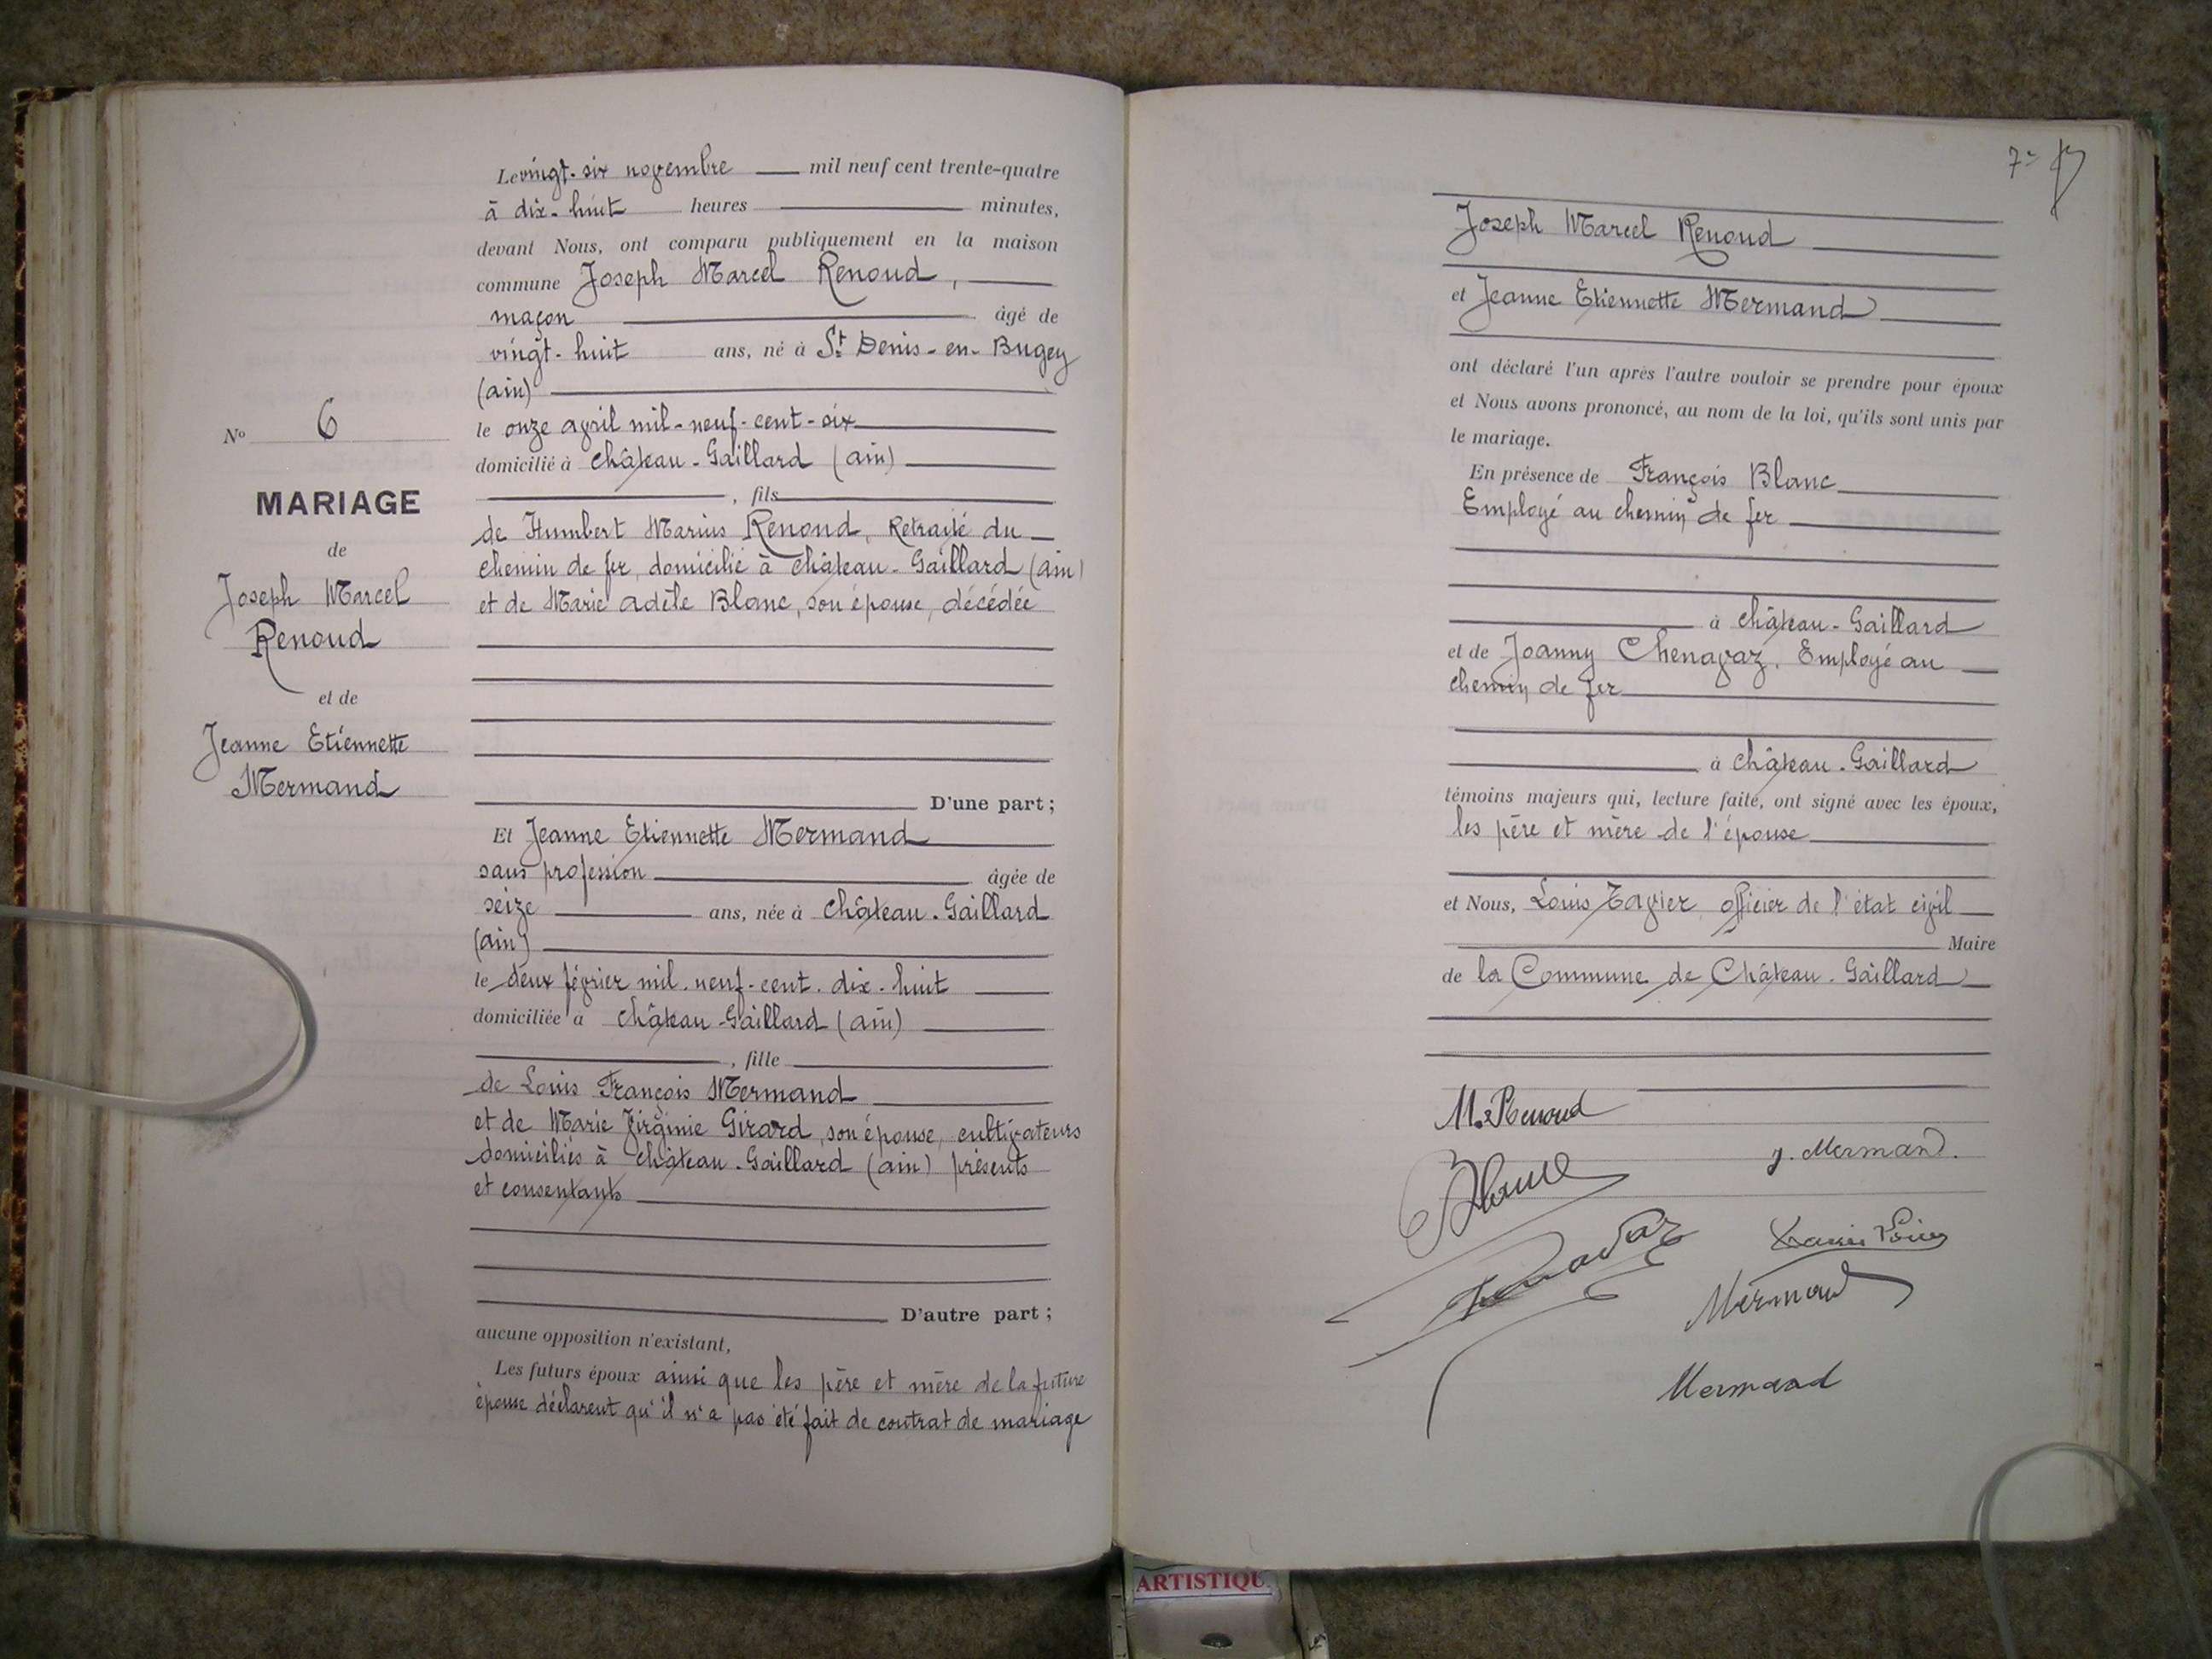 Le vingt-six novembre mil neuf cent trente-quatre
à dix-huit heures minutes,
devant Nous, ont comparu publiquement en la maison
commune Joseph Marcel Renoud,
maçon âgé de
vingt-huit ans, né à St Denis-en-Bugey
(ain)
le onze avril mil-neuf-cent-six
domicilié à château-Gaillard (ain)
, fils
de Humbert Marius Renoud, Retraité du
chemin de fer, domicilié à château-Gaillard (ain)
et de Marie adèle Blanc, son épouse, décédée
D'une part;
Et Jeanne Etiennette Mermand
sans profession âgée de
seize ans, née à château-Gaillard
(ain)
le deux février mil-neuf-cent-dix-huit
domiciliée à château-Gaillard (ain)
, fille
de Louis François Mermand
et de Marie Virginie Girard, son épouse, cultivateurs
domiciliés à château-Gaillard (ain) présents
et consentants
D'autre part;
aucune opposition n'existant,
Les futurs époux ainsi que les père et mère de la future
épouse déclarent qu'il n'a pas été fait de contrat de mariage
No 6
MARIAGE
de
Joseph Marcel
Renoud
et de
Jeanne Etiennette
Mermand
7
Joseph Marcel Renoud
et Jeanne Etiennette Mermand
ont déclaré l'un après l'autre vouloir se prendre pour époux
et Nous avons prononcé, au nom de la loi, qu'ils sont unis par
le mariage.
En présence de François Blanc
Employé au chemin de fer
à château-Gaillard
et de Joanny Chenavaz, Employé au
chemin de fer
à château-Gaillard
témoins majeurs qui, lecture faite, ont signé avec les époux,
les père et mère de l'épouse
et Nous, Louis Tavier officier de l'état civil
Maire
de la Commune de Château-Gaillard
M. Renoud
J. Mermand.
Blanc
Chenavaz
Mermand
Mermand
ARTISTIQU